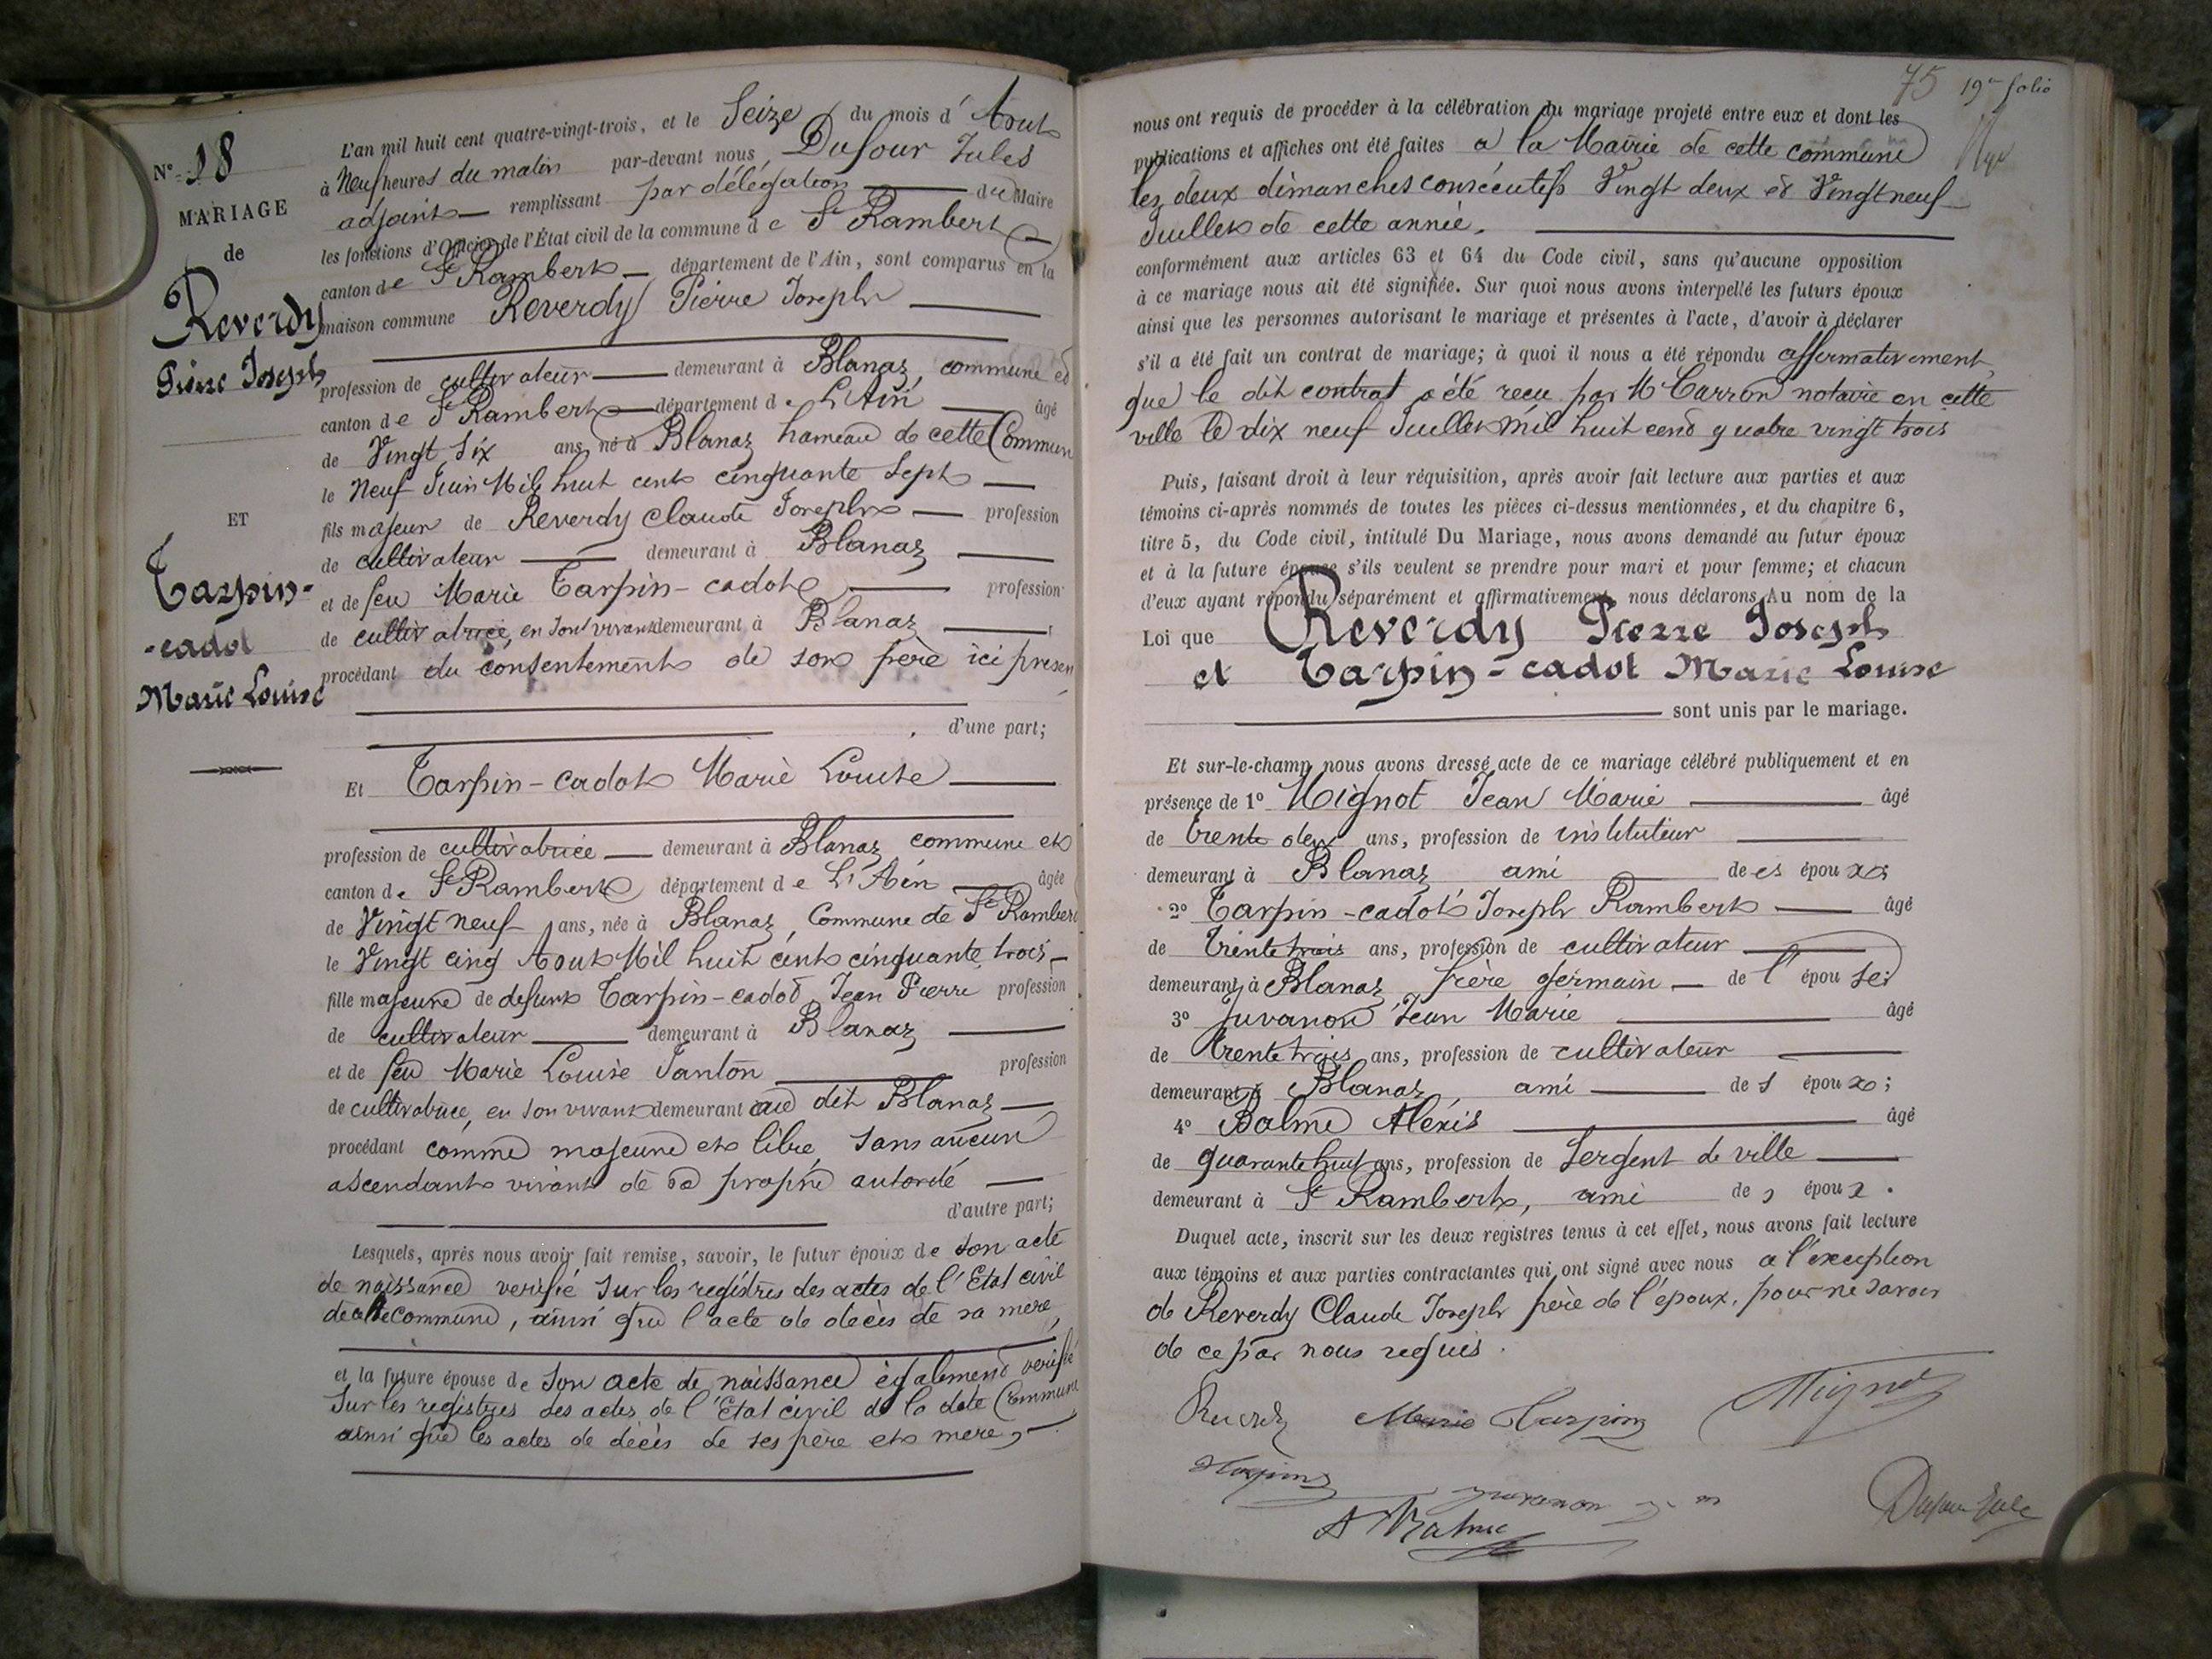 N° 18
MARIAGE
de
Reverdy
Pierre Joseph
ET
Tarpin-
-cadot
Marie Louise
L'an mil huit cent quatre-vingt-trois, et le Seize du mois d'Aout
à Neuf heures du matin par-devant nous, Dufour Jules
adjoint remplissant par délégation du Maire
les fonctions d'Officier de l'État civil de la commune de St Rambert
canton de St Rambert département de l'Ain, sont comparus en la
maison commune Reverdy Pierre Joseph
profession de cultivateur demeurant à Blanaz, commune et
canton de St Rambert département de L'Ain âgé
de Vingt six ans, né à Blanaz hameau de cette Commun
le Neuf Juin Mil huit cent cinquante sept
fils majeur de Reverdy Claude Joseph profession
de cultivateur demeurant à Blanaz
et de feu Marie Tarpin-cadot profession
de cultivatrice, en son vivant demeurant à Blanaz
procédant du consentement de son père ici presen
d'une part;
Et Tarpin-cadot Marie Louise
profession de cultivatrice demeurant à Blanaz commune et
canton de St Rambert département de L'Ain âgée
de Vingt neuf ans, née à Blanaz, Commune de St Rambert
le Vingt cinq Aout Mil huit cent cinquante trois
fille majeure de defunt Tarpin-cadot Jean Pierre profession
de cultivateur demeurant à Blanaz
et de feu Marie Louise Janton profession
de cultivatrice, en son vivant demeurant au dit Blanaz
procédant comme majeure et libre, sans aucun
ascendant vivant de sa propre autorité
d'autre part;
Lesquels, après nous avoir fait remise, savoir, le futur époux de son acte
de naissance verifié sur les registres des actes de l'Etat civil
de commune, ainsi que l'acte de decès de sa mere,
et la future épouse de son acte de naissance également verifié
sur les registres des actes de l'Etat civil de la dite Commune
ainsi que les actes de décès de ses père et mere,
75 19e folio
nous ont requis de procéder à la célébration du mariage projeté entre eux et dont les
publications et affiches ont été faites a la Mairie de cette commune
les deux dimanches consécutifs Vingt deux et Vingt neuf
Juillet de cette année.
conformément aux articles 63 et 64 du Code civil, sans qu'aucune opposition
à ce mariage nous ait été signifiée. Sur quoi nous avons interpellé les futurs époux
ainsi que les personnes autorisant le mariage et présentes à l'acte, d'avoir à déclarer
s'il a été fait un contrat de mariage; à quoi il nous a été répondu affirmativement,
que le dit contrat a été recu par M Carron notaire en cette
ville le dix neuf Juillet mil huit cent quatre vingt trois
Puis, faisant droit à leur réquisition, après avoir fait lecture aux parties et aux
témoins ci-après nommés de toutes les pièces ci-dessus mentionnées, et du chapitre 6,
titre 5, du Code civil, intitulé Du Mariage, nous avons demandé au futur époux
et à la future épouse s'ils veulent se prendre pour mari et pour femme; et chacun
d'eux ayant répondu séparément et affirmativement, nous déclarons Au nom de la
Loi que Reverdy Pierre Joseph
et Tarpin-cadot Marie Louise
sont unis par le mariage.
Et sur-le-champ nous avons dressé acte de ce mariage célébré publiquement et en
présence de 1° Mignot Jean Marie âgé
de trente deux ans, profession de instituteur
demeurant à Blanaz ami des époux;
2° Tarpin-cadot Joseph Rambert âgé
de trente trois ans, profession de cultivateur
demeurant à Blanaz, frère germain de l'épouse;
3° Juvanon Jean Marie âgé
de trente trois ans, profession de cultivateur
demeurant à Blanaz, ami des époux;
4° Balme Aléxis âgé
de quarante huit ans, profession de Sergent de ville
demeurant à St Rambert, ami des époux.
Duquel acte, inscrit sur les deux registres tenus à cet effet, nous avons fait lecture
aux témoins et aux parties contractantes qui ont signé avec nous a l'exception
de Reverdy Claude Joseph père de l'époux, pour ne savoir
de ce par nous requis.
Reverdy Marie Tarpin Mignot
Tarpin Juvanon
A Balme Dufour Jules